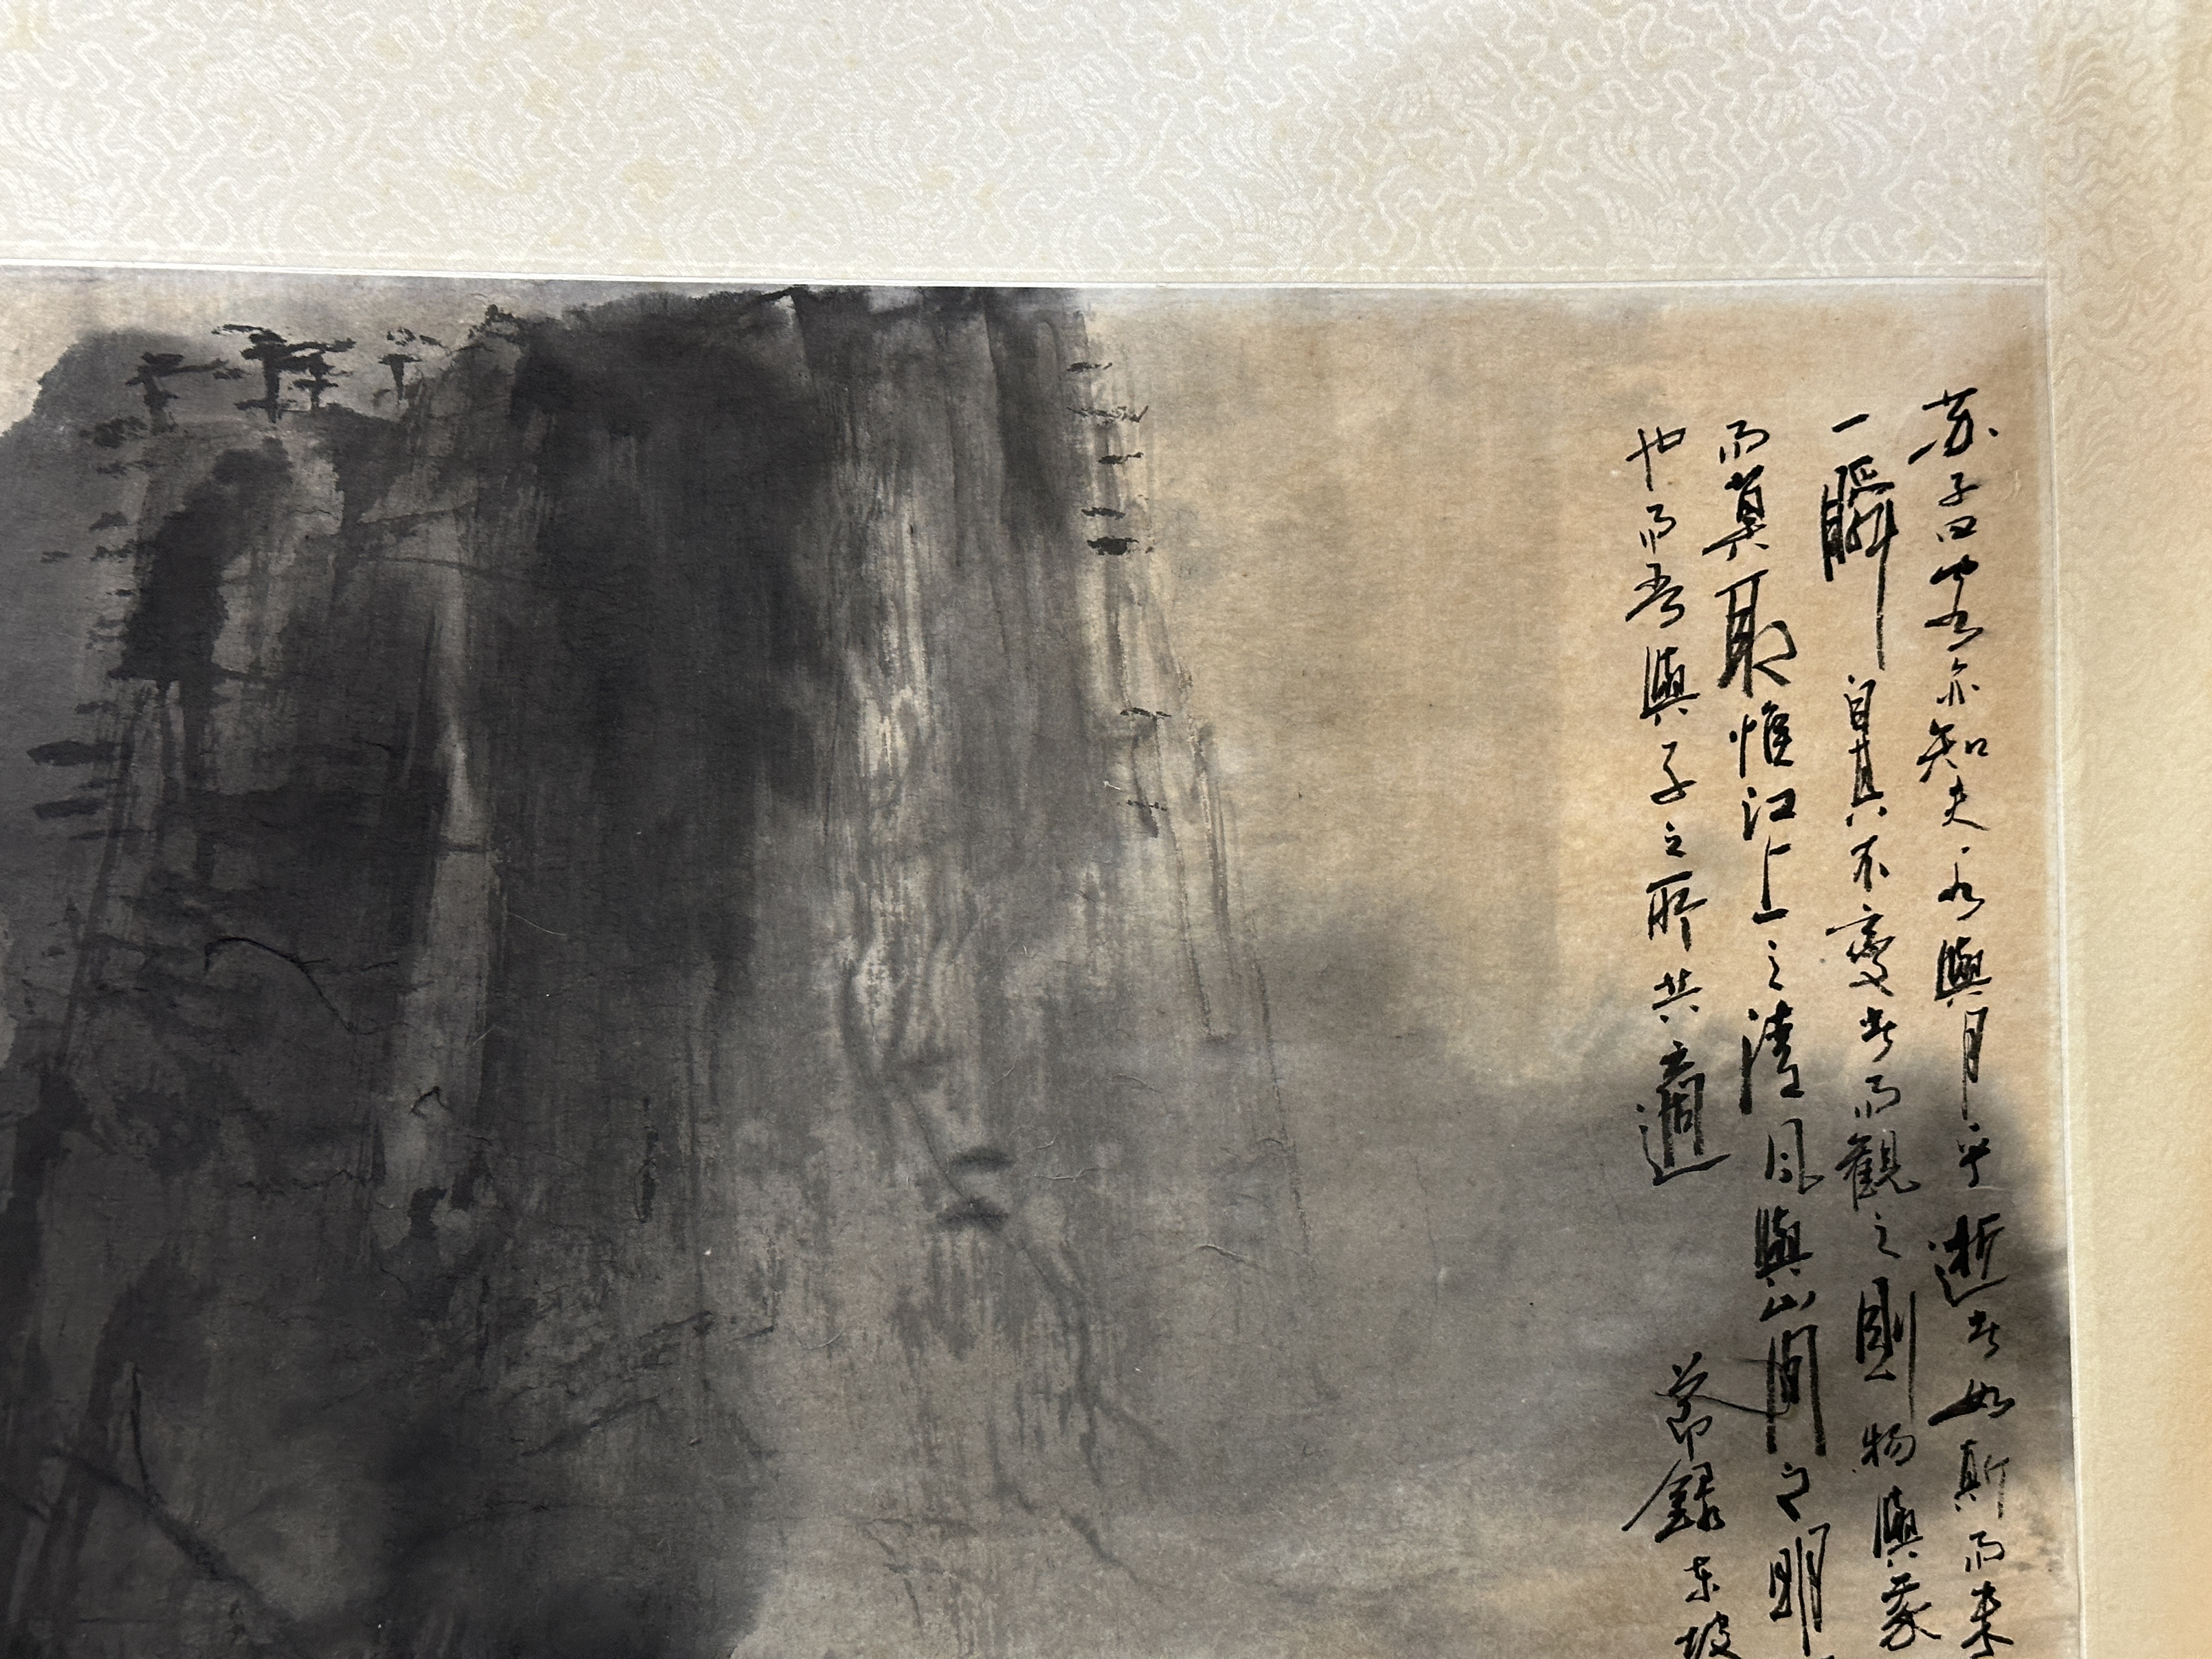 苏子曰客亦知夫水與月乎逝者如斯而未
一瞬自其不變者而觀之則物與我
而莫取惟江上之清風與山間之明
也而吾與子之所共適
節錄东坡